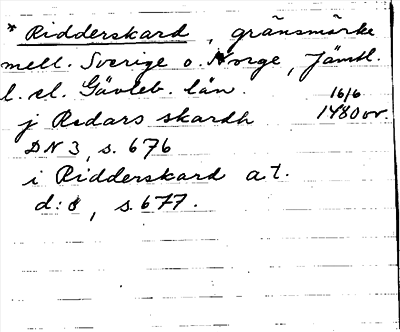 * Ridderskard, gränsmärke
mell. Sverige o. Norge, Jämtl.
l. el. Gävleb. län. 16/6
j Redars skardh 1480 or.
DN 3, s. 676
i Ridderskard a. t.
d:o, s. 677.